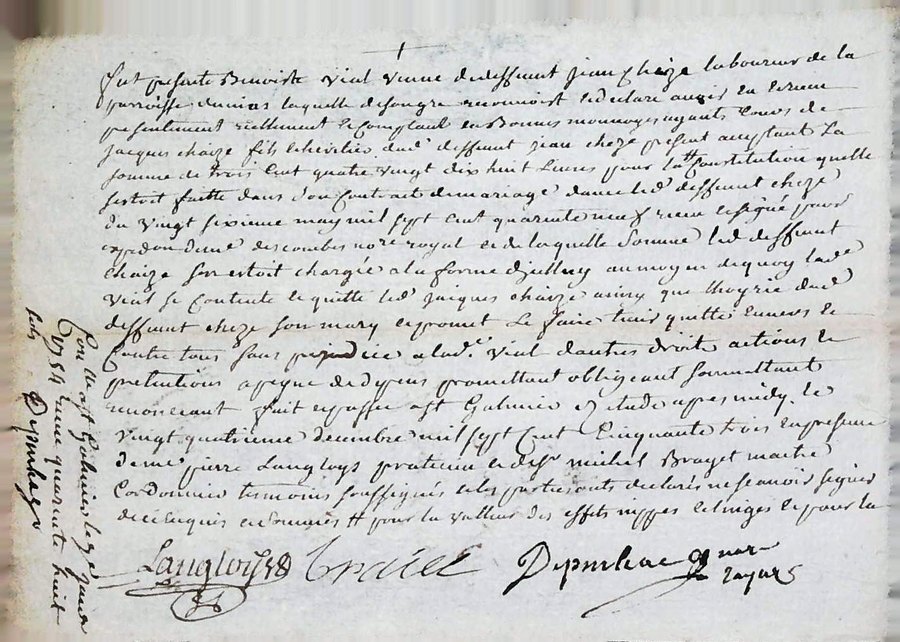 fut presente Benoiste Vial veuve de deffunt jean chaize laboureur de la
parroisse laquelle de son gre reconnoist et declare avoir eu et receu
presentement reellement et comptant en Bonnes monnoyes ayants Cours de
jacques chaize fils et heritier dud.t deffunt jean cheze present acceptant La
somme de trois Cent quatre vingt dix huit Livres pour la Constitution quelle
sestoit faitte dans son Contrat de mariage avec led.t deffunt cheze
du vingt sixieme may mil sept Cent quarente neuf receu et signé par
descombes no.re royal et de laquelle Somme led deffunt
chaize sen estoit chargée a la forme au moyen dequoy lad.e
Vial se Contente et quitte led.t jacques chaize ainsy que lhoyrie dud.t
deffunt cheze son mary et promet Le faire tenir quitte envers et
Contre tous sans prejudice a lad.e Vial dautres droits actions et
pretentions a peyne de depens promettant obligeant soumettant
renonceant fait et passé a S.t Galmier etude apres midy le
vingt quatrieme decembre mil sept Cent Cinquante trois en presence
de m.e pierre Langloys praticien et de s.r michel Brayet maitre
Cordonnier temoins soussignés et les parties ont declaré ne scavoir signer
de ce enquis et sommés # pour la valleur des effets nippes et linges et pour la
Langloys Braiet Depinhac no.re
royal
Con.lle a S.t Galmier le 7e janvier
1754 receu quarente huit
sols Depinhac